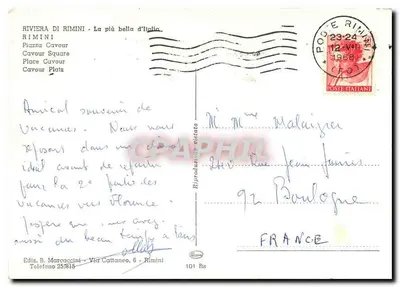 RIVIERA DI RIMINI - La più bella d'Italia
RIMINI
Piazza Cavour
Cavour Square
Place Cavour
Cavour Platz
POSTE RIMINI
23-24
12-VI
1968
POSTE ITALIANE
Amical souvenir de
vacances. Nous nous
reposons dans un
idéal avant de repartir
pour la 2e partie des
vacances vers Florence.
J'espère que vous avez
aussi du beau temps
M. Mme Malaizier
240 Rue Jean Jaurès
92 Boulogne
FRANCE
CPARAMA
Riproduzione vietata
Ediz. R. Marcaccini - Via Cattaneo, 6 - Rimini
Telefono
101 Rn